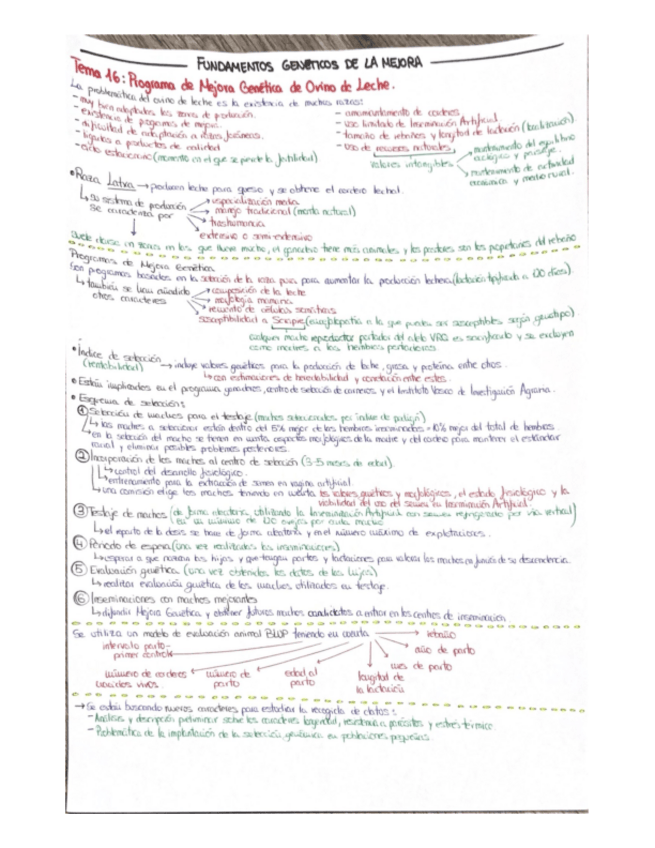 FUNDAMENTOS GENÉTICOS DE LA MEJORA
Tema 16: Programa de Mejora Genética de Ovino de Leche.
La problemática del ovino de leche es la existencia de muchas razas:
- muy bien adaptadas las zonas de producción.
- existencia de programas de mejora.
- dificultad de adaptación a razas foráneas.
- ligadas a productos de calidad
- ciclo estacionario (momento en el que se pierde la fertilidad)
- amamantamiento de corderos
- uso limitado de Inseminación Artificial.
- tamaño de rebaños y longitud de lactación (localización)
- uso de recursos naturales,
valores intangibles
mantenimiento del equilibrio ecológico y paisaje.
mantenimiento de actividad económica y medio rural.
• Raza Latxa → producen leche para queso y se obtiene el cordero lechal.
↳ Su sistema de producción se caracteriza por
especialización media
manejo tradicional (monta natural)
trashumancia
extensivo o semi-extensivo
Suele darse en zonas en las que llueve mucho, el ganadero tiene más animales y los pastores son los propietarios del rebaño
Programas de Mejora Genética
Son programas basados en la selección de la raza pura para aumentar la producción lechera (lactación tipificada a 120 días).
↳ también se han añadido otros caracteres
composición de la leche
morfología mamaria
recuento de células somáticas
susceptibilidad a Scrapie (encefalopatía a la que pueden ser susceptibles según genotipo)
cualquier macho reproductor portador del alelo VRQ es sacrificado y se excluyen como madres a las hembras portadoras.
• Índice de selección (rentabilidad) → incluye valores genéticos para la producción de leche, grasa y proteína entre otros.
↳ con estimaciones de heredabilidad y correlación entre estos.
• Están implicados en el programa ganaderos, centro de selección de carneros y el Instituto Vasco de Investigación Agraria.
• Esquema de selección:
① Selección de machos para el testaje (machos seleccionados por índice de pedigrí)
↳ las madres a seleccionar están dentro del 5% mejor de las hembras inseminadas = 10% mejor del total de hembras
↳ en la selección del macho se tienen en cuenta aspectos morfológicos de la madre y del cordero para mantener el estándar racial y eliminar posibles problemas posteriores.
② Incorporación de los machos al centro de selección (3-5 meses de edad).
↳ control del desarrollo fisiológico.
↳ entrenamiento para la extracción de semen en vagina artificial.
↳ una comisión elige los machos teniendo en cuenta los valores genéticos y morfológicos, el estado fisiológico y la viabilidad del uso del semen en Inseminación Artificial.
③ Testaje de machos (de forma aleatoria, utilizando la Inseminación Artificial con semen refrigerado por vía cervical) en un mínimo de 120 ovejas por cada macho
↳ el reparto de la dosis se hace de forma aleatoria y en el número máximo de explotaciones.
④ Periodo de espera (una vez realizadas las inseminaciones)
↳ esperar a que nazcan las hijas y que tengan partos y lactaciones para valorar los machos en función de su descendencia.
⑤ Evaluación genética (una vez obtenidos los datos de las hijas)
↳ realizar evaluación genética de los machos utilizados en testaje.
⑥ Inseminaciones con machos mejorantes
↳ difundir Mejora Genética y obtener futuros machos candidatos a entrar en los centros de inseminación
Se utiliza un modelo de evaluación animal BLUP teniendo en cuenta
rebaño
año de parto
mes de parto
longitud de la lactación
edad al parto
número de parto
número de corderos nacidos vivos.
intervalo parto-primer control
→ Se están buscando nuevos caracteres para estudiar la recogida de datos:
- Análisis y descripción preliminar sobre los caracteres longevidad, resistencia a parásitos y estrés térmico
- Problemática de la implantación de la selección genómica en poblaciones pequeñas